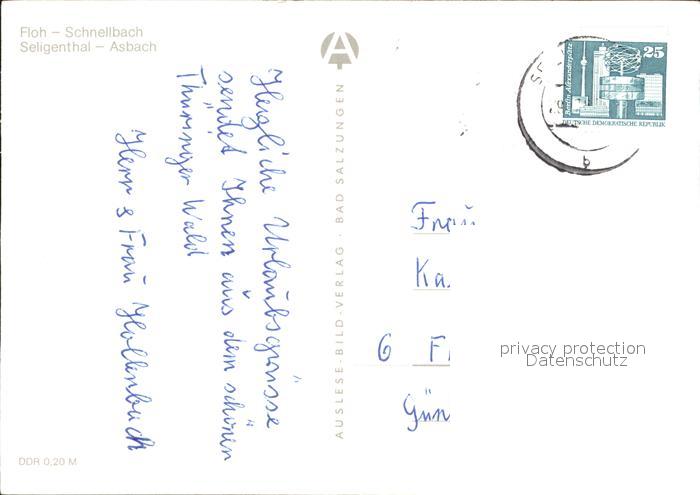 Floh – Schnellbach
Seligenthal – Asbach
Herzliche Urlaubsgrüsse
sendet Ihnen aus dem schönen
Thüringer Wald
Herr & Frau Hollenbach
DDR 0,20 M
AUSLESE-BILD-VERLAG · BAD SALZUNGEN
25
Berlin, Alexanderplatz
DEUTSCHE DEMOKRATISCHE REPUBLIK
b
Frau
Ka
6 F
Gün
privacy protection
Datenschutz